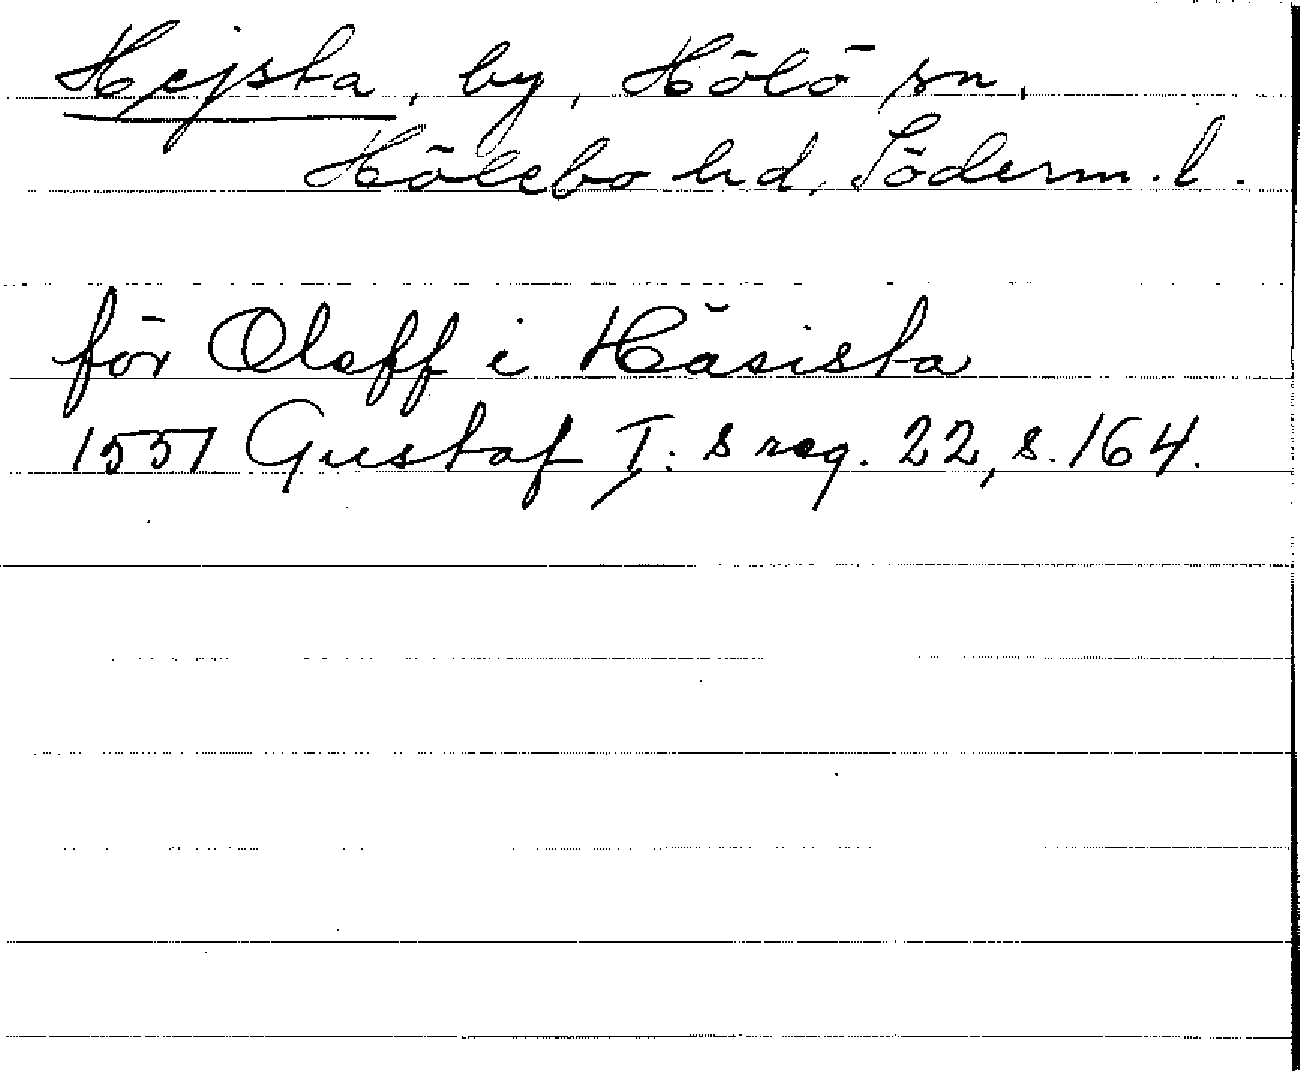 Hejsta, by, Hölö sn,
Hölebo hd, Söderm. l.
för Oleff i Häsista
1551 Gustaf I: s reg. 22, s. 164.